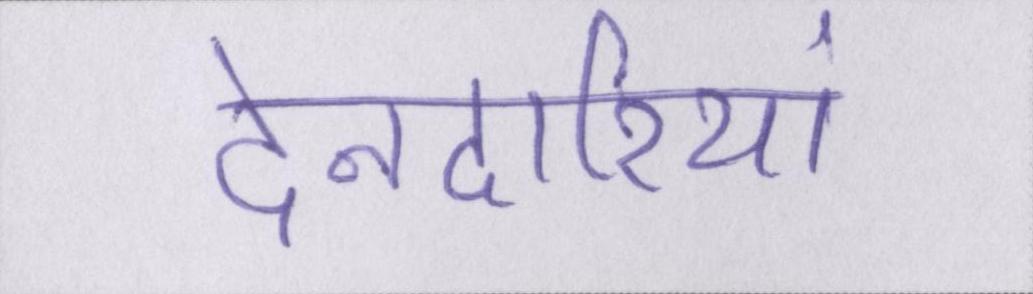 देनदारियां